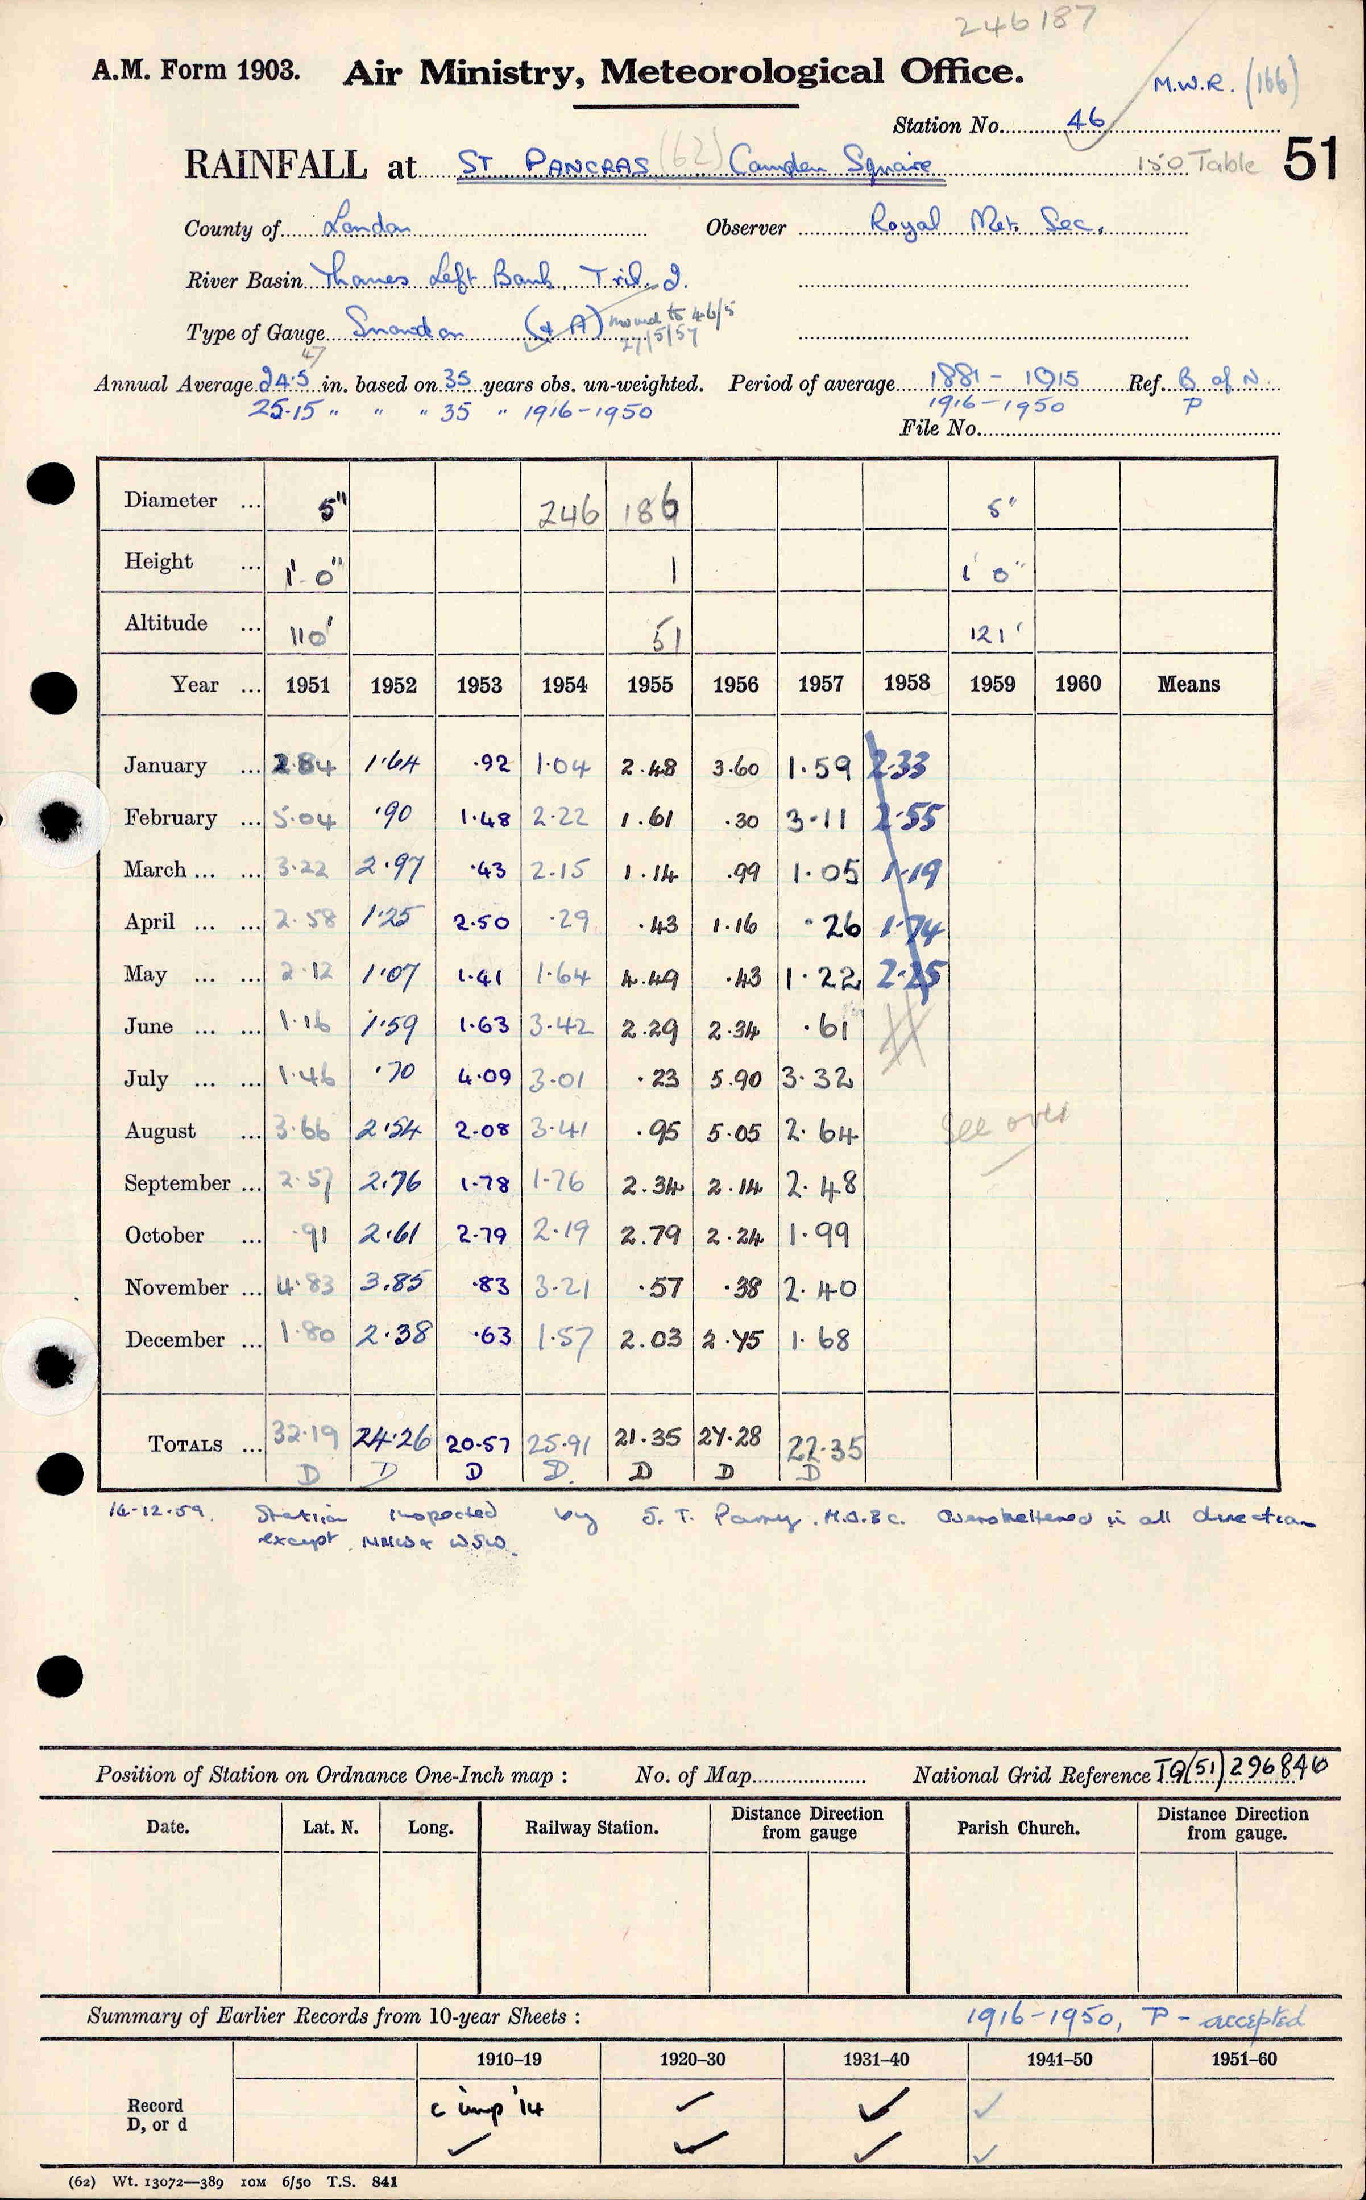 246187
A.M. Form 1903. Air Ministry, Meteorological Office.
M.W.R. (166)
Station No. 46
RAINFALL at ST. PANCRAS (62) Camden Square 150 Table 51
County of London Observer Royal Met. Soc.
River Basin Thames Left Bank. Trib. 2.
Type of Gauge Snowdon (& A) moved to 46/5
27/5/57
47
Annual Average 24.5 in. based on 35 years obs. un-weighted. Period of average 1881 - 1915 Ref. B of N.
25.15 " " " 35 " 1916-1950 1916-1950 P
File No.
Diameter ... 5" 246 186 5"
Height ... 1' 0" 1 1' 0"
Altitude ... 110' 51 121'
Year ... 1951 1952 1953 1954 1955 1956 1957 1958 1959 1960 Means
January ... 2.84 1.64 .92 1.04 2.48 3.60 1.59 2.33
February ... 5.04 .90 1.48 2.22 1.61 .30 3.11 2.55
March ... ... 3.22 2.97 .43 2.15 1.14 .99 1.05 1.19
April ... ... 2.58 1.25 2.50 .29 .43 1.16 .26 1.74
May ... ... 2.12 1.07 1.41 1.64 4.49 .43 1.22 2.25
June ... ... 1.16 1.59 1.63 3.42 2.29 2.34 .61
July ... ... 1.46 .70 4.09 3.01 .23 5.90 3.32
August ... 3.66 2.54 2.08 3.41 .95 5.05 2.64 See over
September ... 2.57 2.76 1.78 1.76 2.34 2.14 2.48
October ... .91 2.61 2.79 2.19 2.79 2.24 1.99
November ... 4.83 3.85 .83 3.21 .57 .38 2.40
December ... 1.80 2.38 .63 1.57 2.03 2.75 1.68
TOTALS ... 32.19 24.26 20.57 25.91 21.35 27.28 22.35
D D D D. D D D
14-12-59. Station inspected by S. T. Parry. M.O.3c. Oversheltered in all direction
except NNW & WSW.
Position of Station on Ordnance One-Inch map : No. of Map National Grid Reference TQ(51)296846
Date. Lat. N. Long. Railway Station. Distance Direction from gauge Parish Church. Distance Direction from gauge.
Summary of Earlier Records from 10-year Sheets : 1916-1950, P - accepted
1910–19 1920–30 1931–40 1941–50 1951–60
Record c imp '14 ✓ ✓ ✓
D, or d ✓ ✓ ✓ ✓
(62) Wt. 13072—389 10M 6/50 T.S. 841